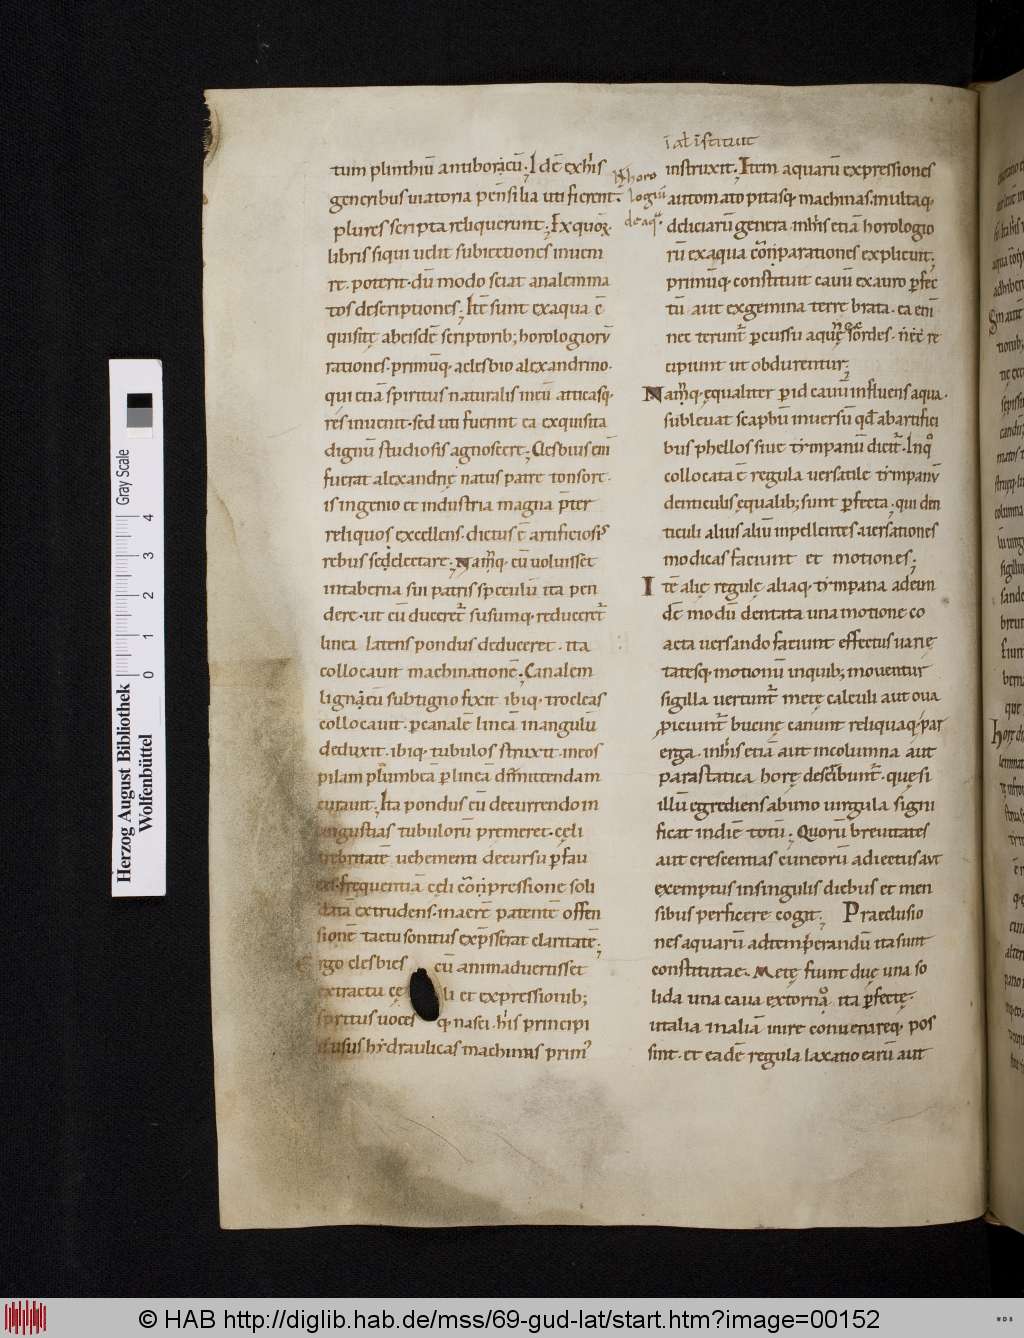 tum plinthiū antiboręcū. Idē exhis
generibus uiatoria pensilia uti fierent.
plures scripta reliquerunt; Ex quoꝝ
libris siqui uelit subiectiones inueni
re. poterit. dū modo sciat analemma
tos descriptiones; Itē sunt exaqua ē
quisitę abeisdē scriptorib; horologiorū
rationes. primūq. aclesbio alexandrino.
qui etiā spiritus naturalis incū atticasq.
res inuenit. sed uti fuerint ea exquisita
dignū studiosis agnoscere; Clesbius eni
fuerat alexandrię natus patre tonsore.
is ingenio et industria magna p̄ter
reliquos excellens. dictus ē artificiosis
rebus sedelectare; Nāq. cū uoluisset
intaberna sui patris speculū ita pen
dere. ut cū duceret̄ susumq. reduceret̄
linea latens pondus deduceret. ita
collocauit machinationē; Canalem
lignācū subtigno fixit ibiq. trocleas
collocauit. p̲canalē lineā inangulū
deduxit. ibiq. tubulos struxit. ineos
pilam plūmbeā p̲lineā dimittendam
curauit; Ita pondus cū decurrendo in
angustias tubulorū premeret. cęli
crebritatē uehementi decursu p̲fau
ces. frequentiā cęli cōnpressione soli
datā extrudens. inaerē patentē offen
sionē tactu sonitus exp̄sserat claritatē;
Ergo clesbies cū animaduertisset
extractu cę li et expressionib;
spiritus uoces q. nasci. his principi
is usus hydraulicas machinas primꝰ
horo
logiū
de aq̄.
ī at īstituit
instruxit; Item aquarū expressiones
automatopitasq. machinas. multaq.
deliciarū genera. inhis etiā horologio
rū exaqua cōnparationes explicuit;
primūq. constituit cauū exauro p̲fec
tū aut exgemma terre brata. ea eni
nec terunt̄ p̲cussu aquę sordes. nec re
cipiunt ut obdurentur;
Nāq. ęqualiter p̲id cauū influens aqua.
subleuat scaphū inuersū qđ abartifici
bus phellos siue tympanū dicit̄. Inqͦ
collocata ē regula uersatile tympanū
denticulis ęqualib; sunt p̲fecta. qui den
ticuli alius aliū inpellentes. auersationes
modicas faciunt et motiones;
Itē alię regulę aliaq. tympana adeun
dē modū dentata una motione co
acta uersando faciunt effectus uarię
tatesq. motionū inquib; mouentur
sigilla uertunt̄ metę calculi aut oua
ꝓiciunt̄ bucinę canunt reliquaq. par
erga. inhis etiā aut incolumna aut
parastatica horę describunt̄. quę si
illū egrediens abimo uirgula signi
ficat indiē totū; Quorū breuitates
aut crescentias cuneorū adiectus aut
exemptus insingulis diebus et men
sibus perficere cogit; Praeclusio
nes aquarū adtemperandū ita sunt
constitutae. Metę fiunt duę una so
lida una caua extornͦ. ita p̲fectę.
utalia inaliā inire conuenireq. pos
sint. et eadē regula laxatio earū aut
Herzog August Bibliothek
Wolfenbüttel
0 1 2 3 4
Gray Scale
© HAB http://diglib.hab.de/mss/69-gud-lat/start.htm?image=00152